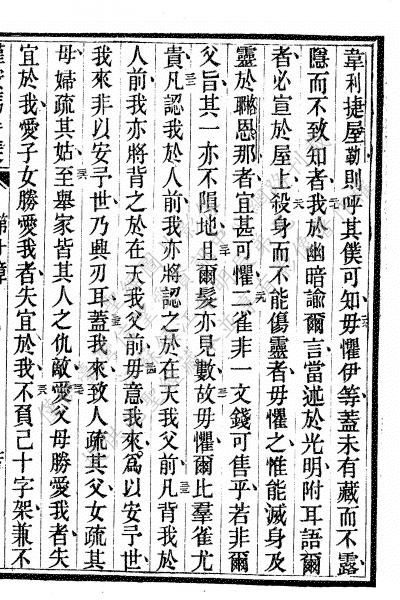 韋利捷屋勒則呼其僕可知毋懼伊等蓋未有藏而不露
隱而不致知者我於幽暗諭爾言當述於光明附耳語爾
者必宣於屋上殺身而不能傷靈者毋懼之惟能滅身及
靈於聯恩那者宜甚可懼二雀非一文錢可售乎若非爾
父旨其一亦不隕地且爾髮亦見數故毋懼爾比羣雀尤
貴凡認我於人前我亦將認之於在天我父前凡背我於
人前我亦將背之於在天我父前毋意我來爲以安予世
我來非以安予世乃興刃耳蓋我來致人疏其父女疏其
母婦疏其姑至舉家皆其人之仇敵愛父母勝愛我者失
宜於我愛子女勝愛我者失宜於我不負己十字架兼不
第十章